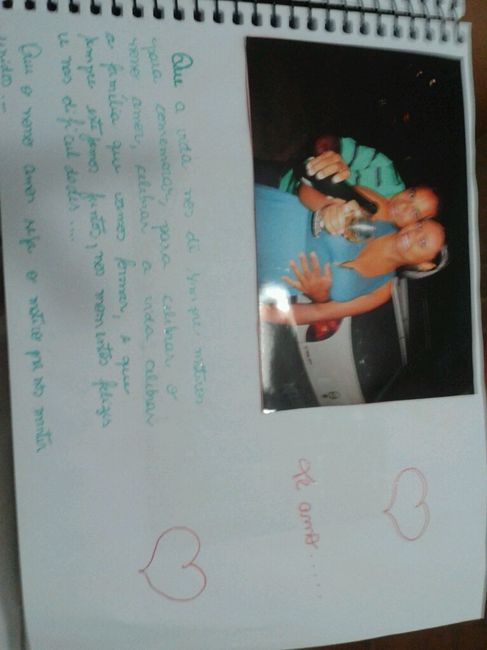 Te amo.....
Que a vida nos dê sempre motivos
para comemorar, para celebrar o
nosso amor, celebrar a vida, celebrar
a família que vamos formar, e que
sempre estejamos juntos, nos momentos felizes
e nas dificuldades...
Que o nosso amor seja o motivo pra nos manter
unidos...